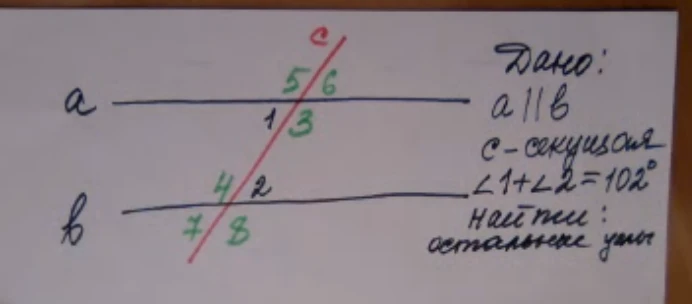 c
5 6
a
1 3
4 2
в
7 8
Дано:
a || в
с-секущая
∠1+∠2=102°
найти:
остальные углы